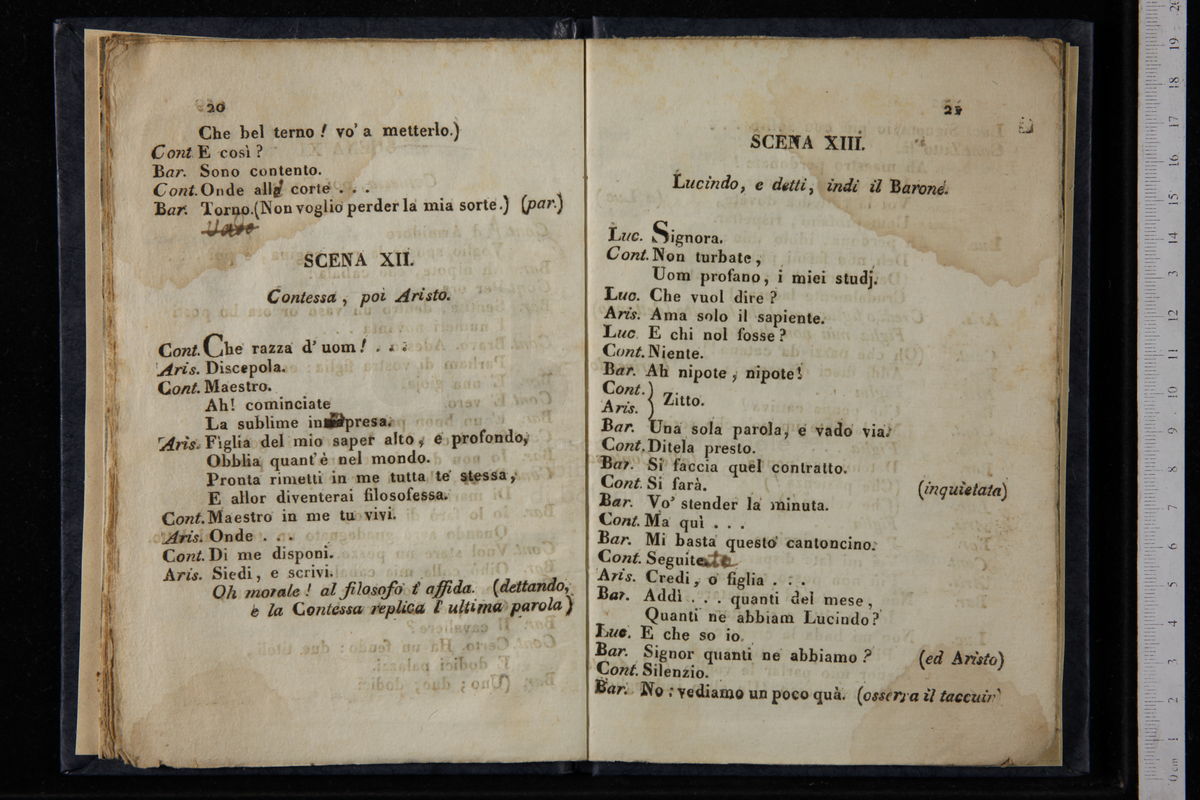 20
Che bel terno! vo' a metterlo.)
Cont. E così?
Bar. Sono contento.
Cont. Onde alla corte . . .
Bar. Torno.(Non voglio perder la mia sorte.) (par.)
SCENA XII.
Contessa, poi Aristo.
Cont. Che razza d' uom! . . .
Aris. Discepola.
Cont. Maestro.
Ah! cominciate
La sublime impresa.
Aris. Figlia del mio saper alto, e profondo,
Obblia quant'è nel mondo.
Pronta rimetti in me tutta te stessa,
E allor diventerai filosofessa.
Cont. Maestro in me tu vivi.
Aris. Onde . . .
Cont. Di me disponi.
Aris. Siedi, e scrivi.
Oh morale! al filosofo t' affida. (dettando,
e la Contessa replica l' ultima parola)
21
SCENA XIII.
Lucindo, e detti, indi il Barone.
Luc. Signora.
Cont. Non turbate,
Uom profano, i miei studj.
Luc. Che vuol dire?
Aris. Ama solo il sapiente.
Luc. E chi nol fosse?
Cont. Niente.
Bar. Ah nipote, nipote!
Cont. ) Zitto.
Aris. )
Bar. Una sola parola, e vado via.
Cont. Ditela presto.
Bar. Si faccia quel contratto.
Cont. Si farà. (inquietata)
Bar. Vo' stender la minuta.
Cont. Ma quì . . .
Bar. Mi basta questo cantoncino.
Cont. Seguite
Aris. Credi, o figlia . . .
Bar. Addì . . . quanti del mese,
Quanti ne abbiam Lucindo?
Luc. E che so io.
Bar. Signor quanti ne abbiamo? (ed Aristo)
Cont. Silenzio.
Bar. No: vediamo un poco quà. (osserva il taccuin